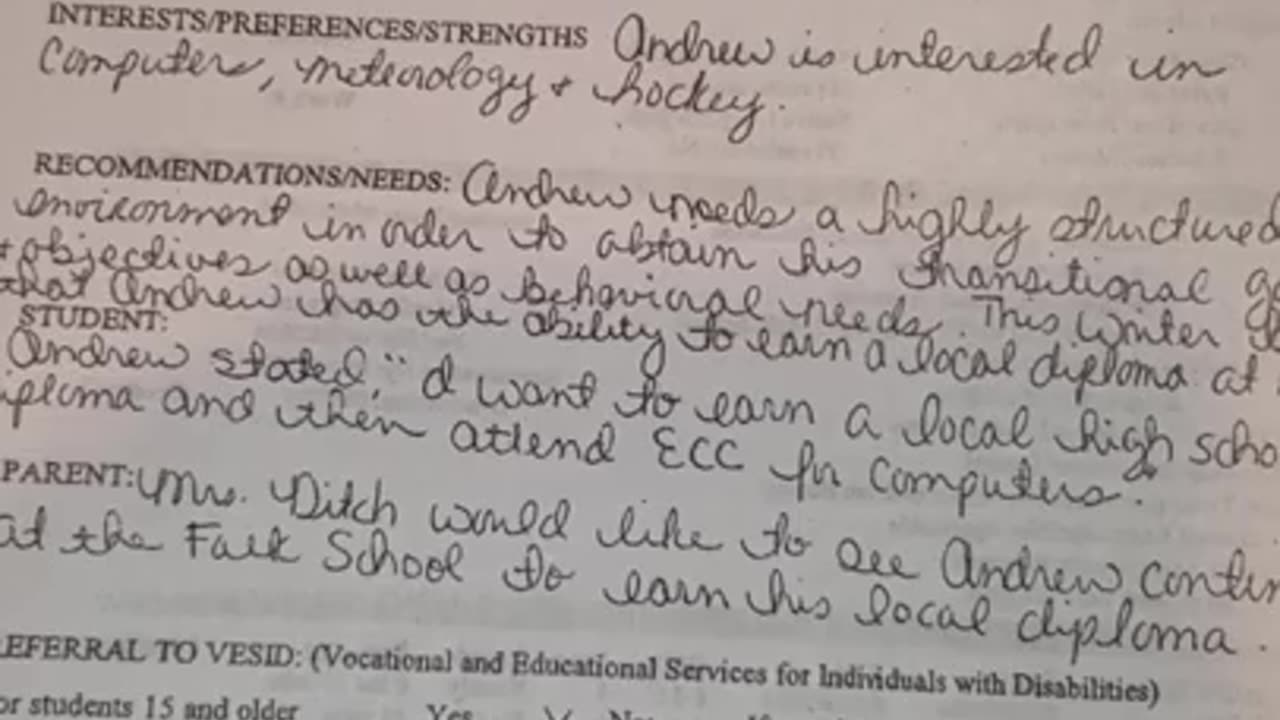 INTERESTS/PREFERENCES/STRENGTHS Andrew is interested in
Computers, meteorology + hockey.
RECOMMENDATIONS/NEEDS: Andrew needs a highly structured
environment in order to obtain his transitional
+ objectives as well as behavioral needs. This Winter
that Andrew has the ability to earn a local diploma at
STUDENT:
Andrew stated, "I want to earn a local high scho
iploma and then attend ECC for Computers."
PARENT: Mrs. Ditch would like to see Andrew contin
at the Falk School to earn his local diploma.
EFERRAL TO VESID: (Vocational and Educational Services for Individuals with Disabilities)
or students 15 and older Yes No